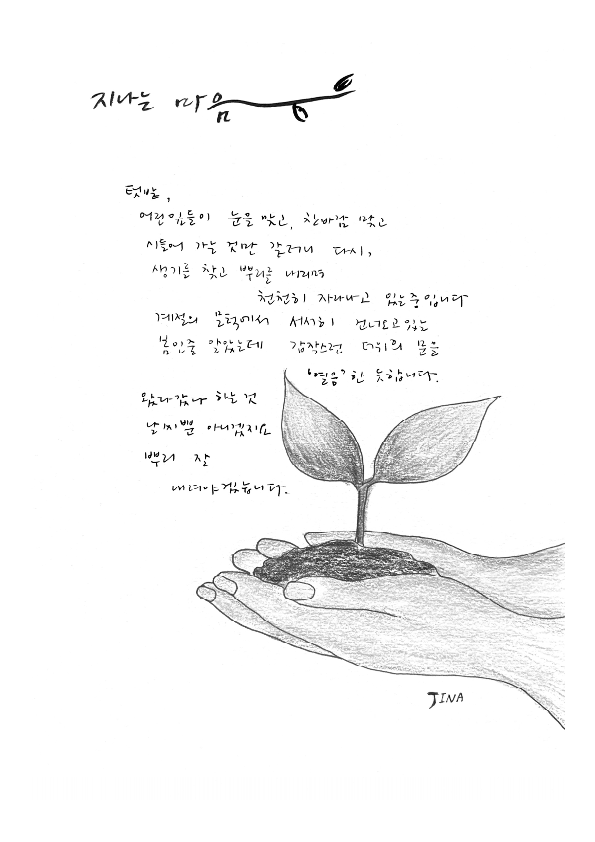 지나는 마음
텃밭,
어린잎들이 눈을 맞고, 찬바람 맞고
시들어 가는 것만 같더니 다시,
생기를 찾고 뿌리를 내리며
천천히 자라나고 있는중입니다
계절의 문턱에서 서서히 건너오고있는
봄인줄 알았는데 갑작스런 더위의 문을
"열음"한 듯합니다.
왔다갔다 하는 것
날씨뿐 아니겠지요
뿌리 잘
내려야겠습니다.
JINA